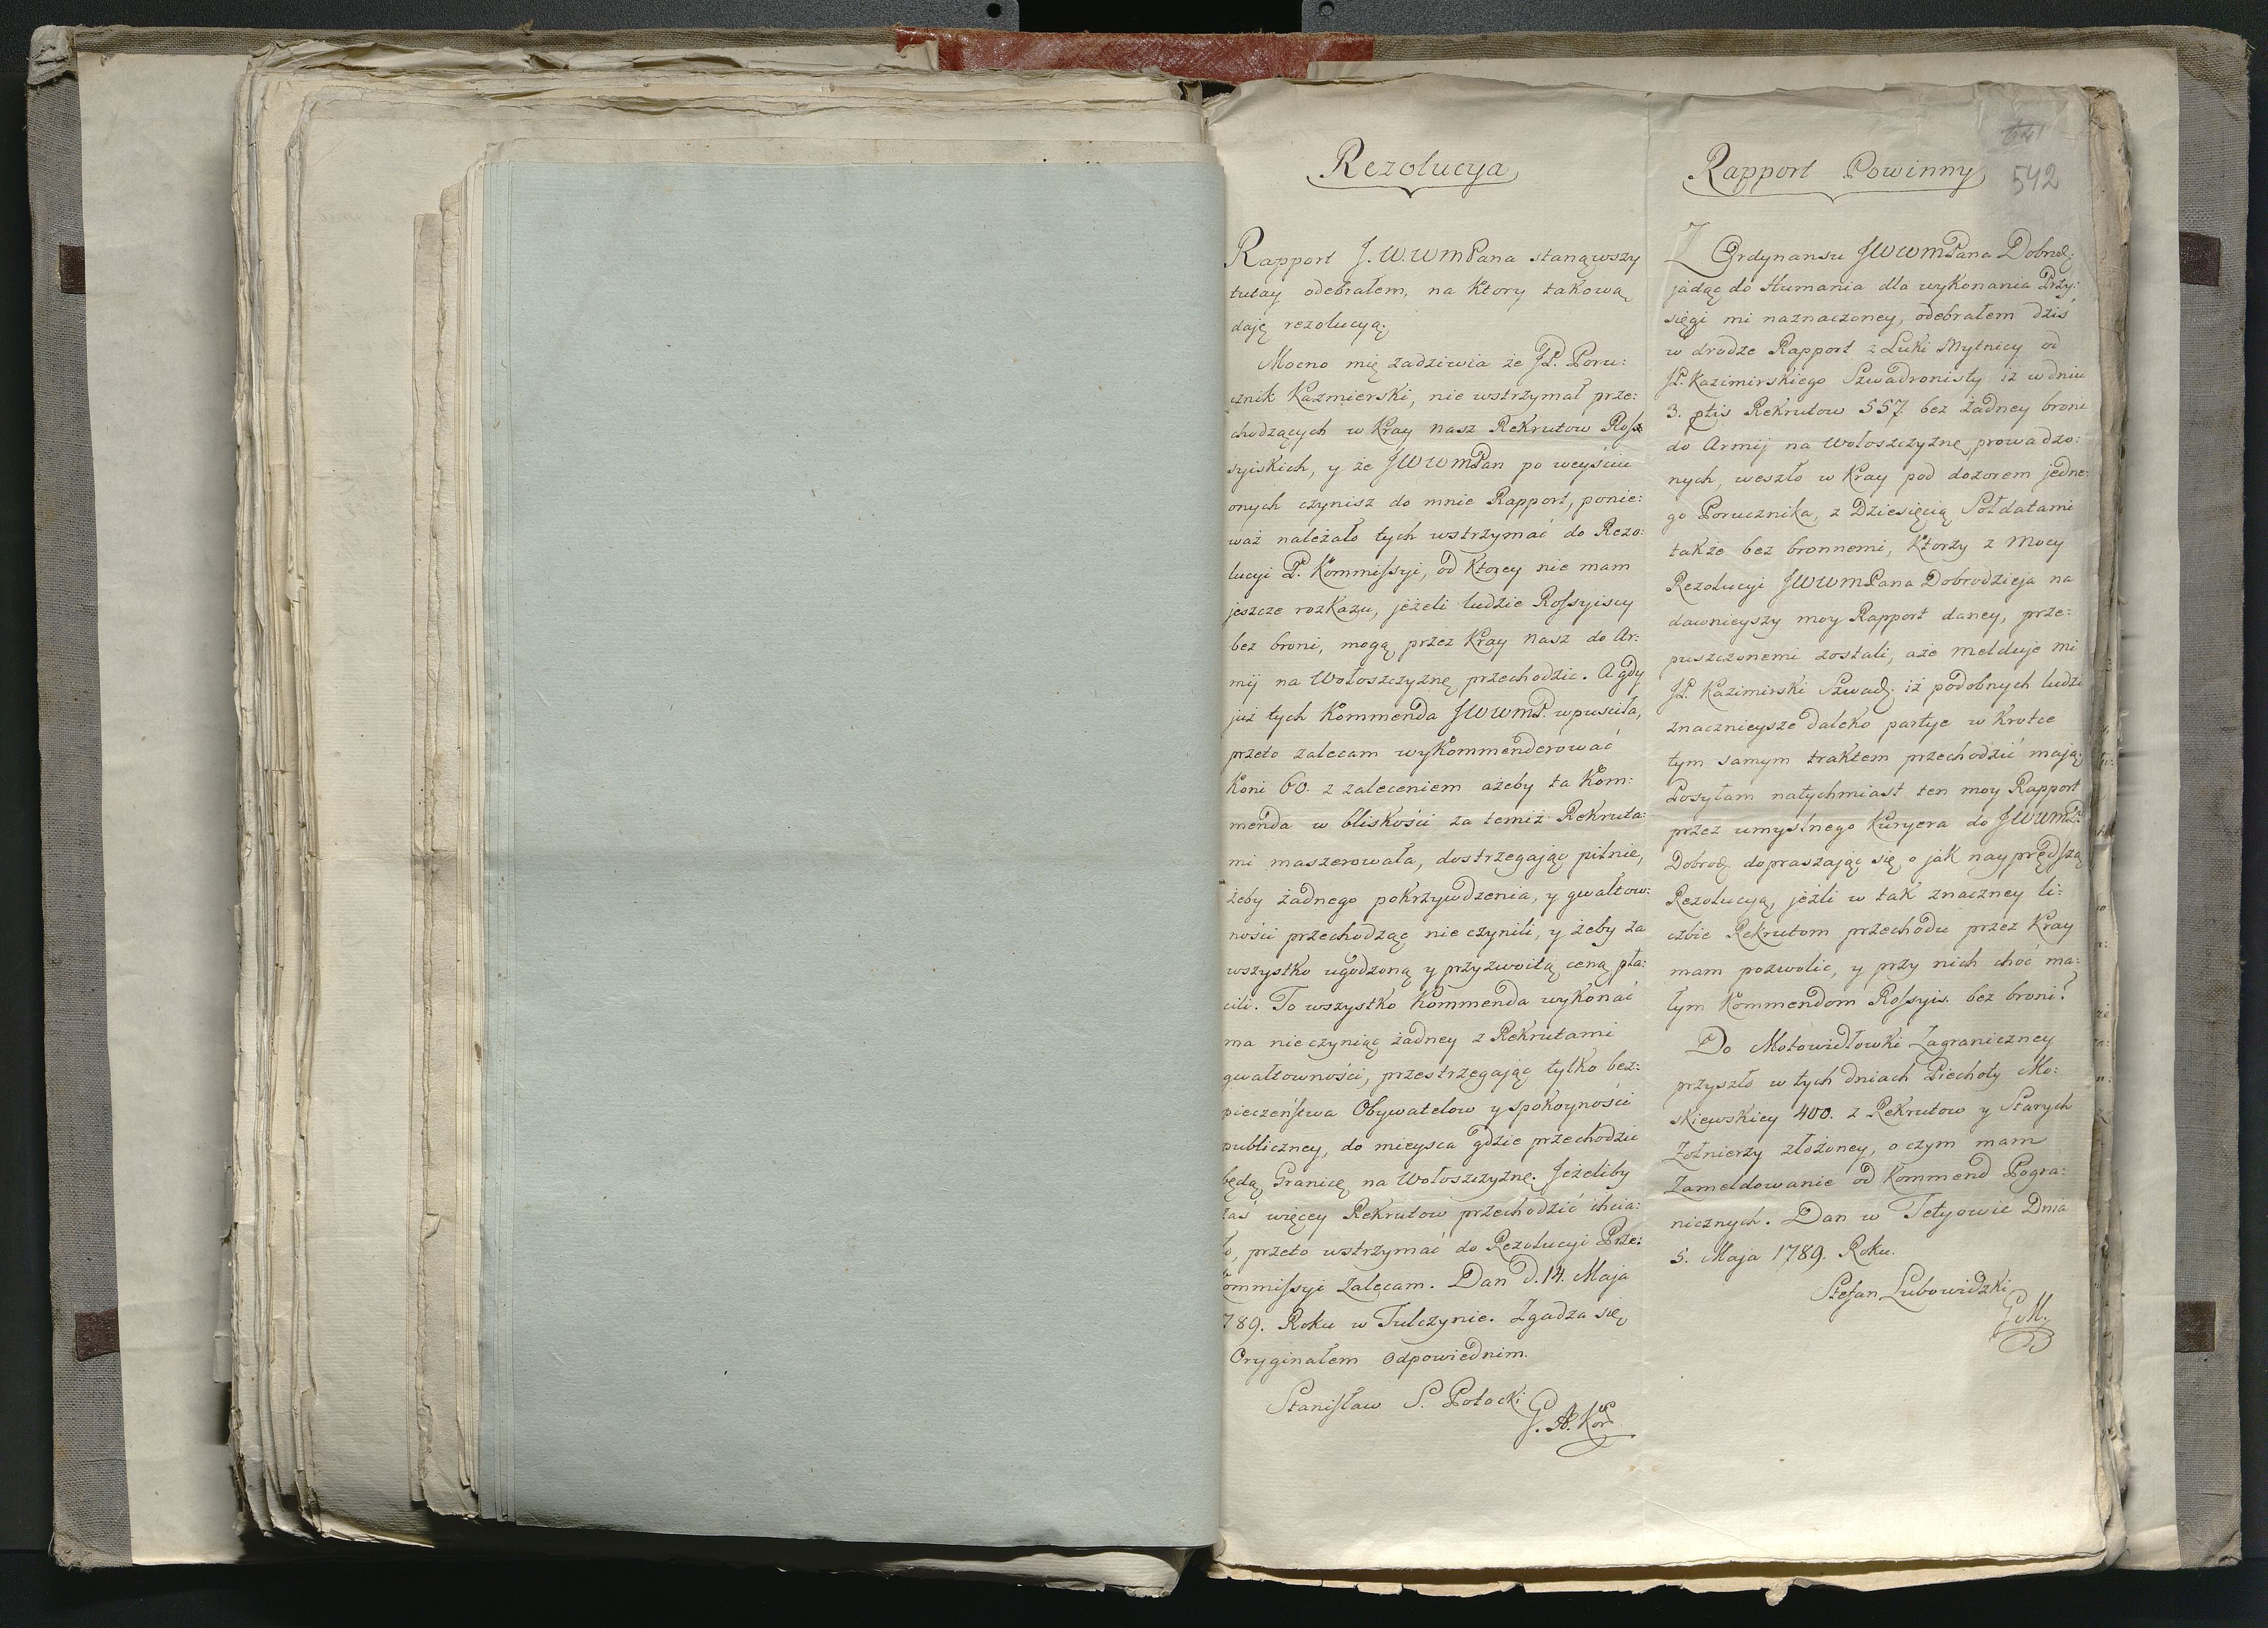 Rezolucya
Rapport J.W.WMPana stanąwszy
tutay odebrałem, na Ktory takową
daię rezolucyą;
Mocno mię zadziwia że JP. Poru:
cznik Kazmierski, nie wstrzymał prze:
chodzących w Kray nasz Rekrutow Ross
syiskich, y że JWWMPan po weyściu
onych czynisz do mnie Rapport, ponie:
waż należało tych wstrzymać do Rezo:
lucyi P. Kommissyi, od Ktorey nie mam
jeszcze rozkazu, jeżeli ludzie Rossyiscy
bez broni, mogą przez Kray nasz do Ar:
mij na Wołoszczyznę przechodzic. A gdy
już tych Kommenda JWWMP. wpusciła,
przeto zalecam wykommenderować
Koni 60. z zaleceniem ażeby ta Kom:
menda w bliskości za temiż Rekruta:
mi maszerowała, dostrzegając pilnie,
żeby żadnego pokrzywdzenia, y gwałtow:
ności przechodząc nie czynili, y żeby za
wszystko ugodzoną y przyzwoitą ceną pła:
cili. To wszystko Kommenda wykonać
ma nie czyniąc żadney z Rekrutami
gwałtowności, przestrzegając tylko bez:
pieczeństwa Obywatelow y spokoyności
publiczney, do mieysca gdzie przechodzic
będą Granicę na Wołoszczyznę. Jeżeliby
zaś więcey Rekrutow przechodzić chcia:
ło, przeto wstrzymać do Rezolucyi Prze:
ommissyi Zalecam. Dan D. 14. Maja
789. Roku w Tulczynie. Zgadza się
Oryginałem odpowiednim.
Stanisław S. Potocki
G. A. Kor.
641
Rapport Powinny
542
Z Ordynansu JWWMPana Dobrodz:
jadąc do Humania dla wykonania Przy:
sięgi mi naznaczoney, odebrałem dziś
w drodze Rapport z Łuki Mytnicy od
JP. Kazimirskiego Szwadronisty iż w dniu
3. ptis Rekrutow 557. bez żadney broni
do Armij na Wołoszczyznę prowadzo:
nych, weszło w Kray pod dozorem jedne:
go Porucznika, z Dziesięcią Sołdatami
także bez bronnemi, Ktorzy z Mocy
Rezolucyi JWWMPana Dobrodzieja na
dawnieyszy moy Rapport daney, prze:
puszczonemi zostali, aże melduje mi
JP. Kazimirski Szwad: iż podobnych ludzi
znacznieysze daleko partye w Krotce
tym samym traktem przechodzić mają;
Posyłam natychmiast ten moy Rapport
przez umyslnego Kuryera do JWWMP.
Dobrodz. dopraszając się o jak nayprędszą
Rezolucyą, jeżli w tak znaczney li:
czbie Rekrutom przechodu przez Kray
mam pozwolic, y przy nich choć ma:
łym Kommendom Rossyis. bez broni?
Do Motowidłowki Zagraniczney
przyszło w tych dniach Piechoty Mo:
skiewskiey 400. z Rekrutow y Starych
Żołnierzy złożoney, o czym mam
Zameldowanie od Kommend Pogra:
nicznych. Dan w Tetyowie Dnia
5. Maja 1789. Roku.
Stefan Lubowidzki
G. M.